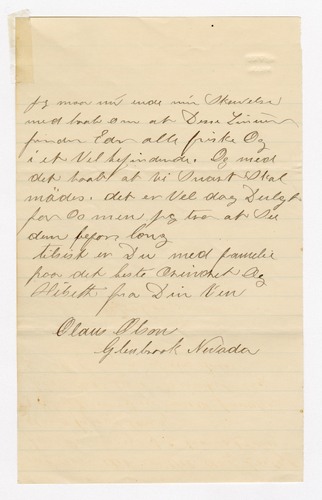 Jeg maa nu ende min Skrivelse
med haab om at Disse Linier
finder Eder alle friske Og
i et Vel befindende. Og med
det haab at vi Snart Skal
mødes. det er Vel dog
for Os men jeg tror at See
dem before long
tilsist er Du med familie
paa det beste Og
fra Din Ven
Olaus Olson
Glenbrook Nevada